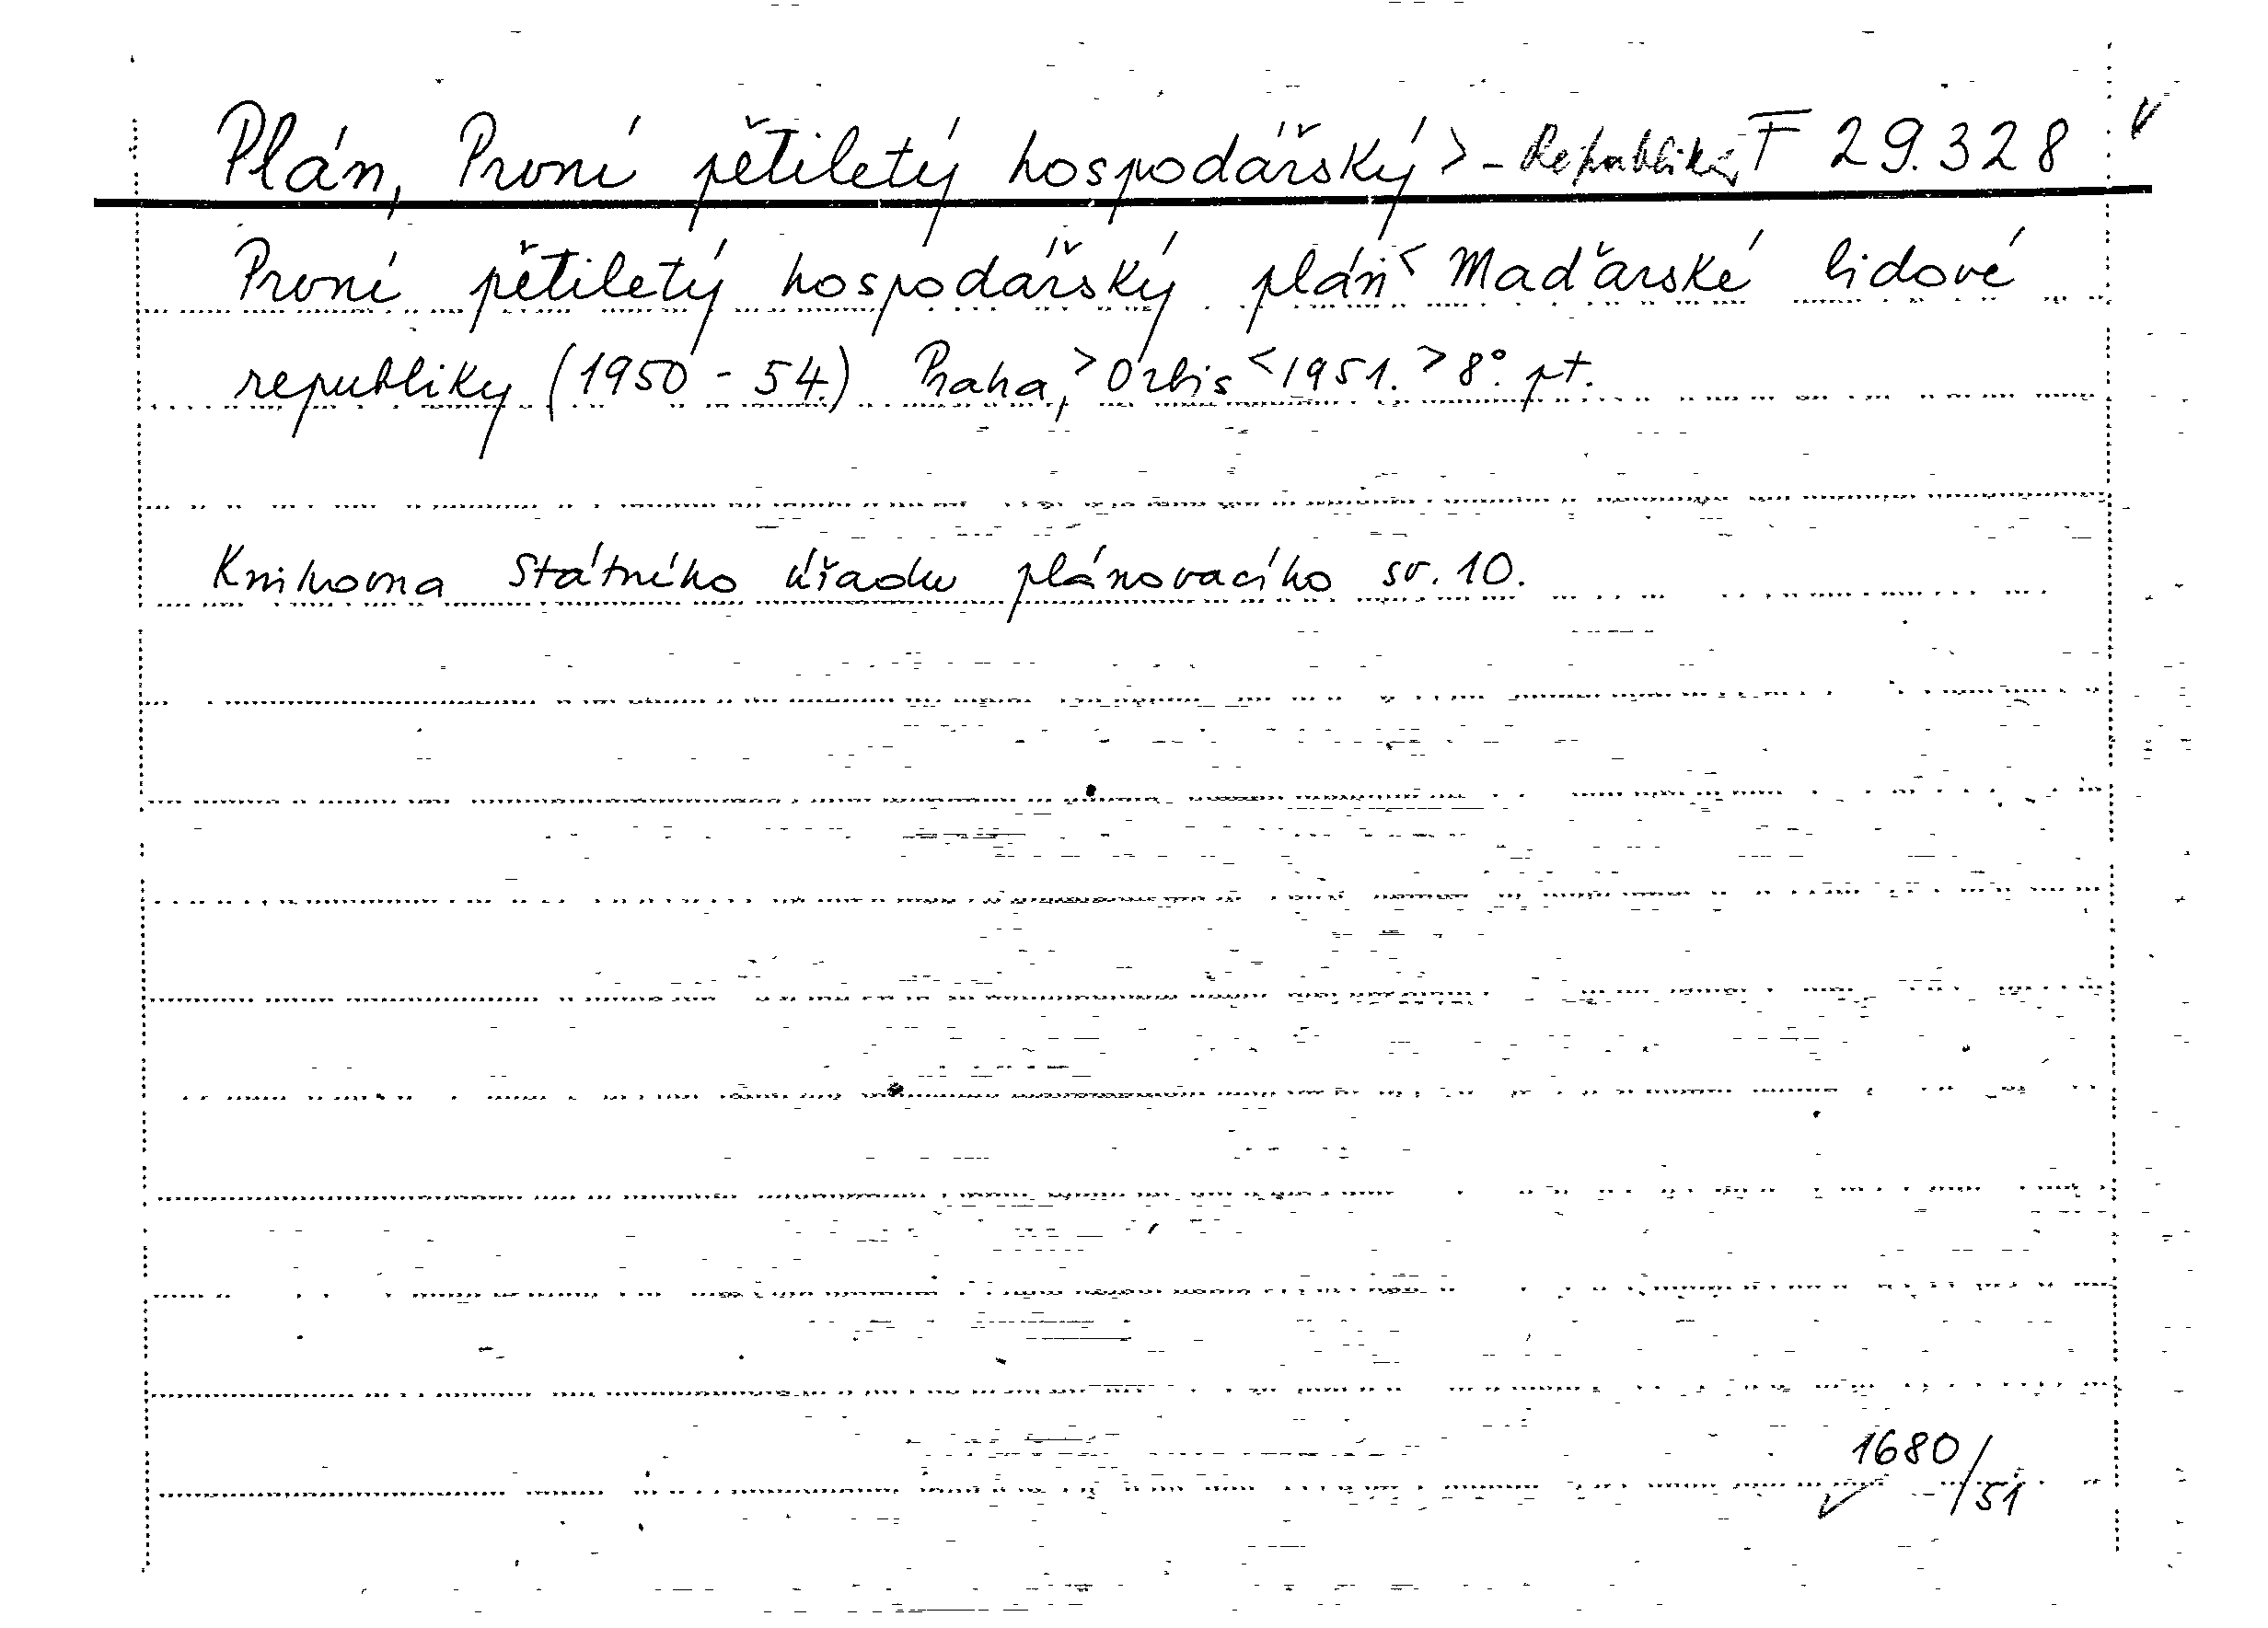 Plán, První pětiletý hospodářský > - Republiky F 29.328
První pětiletý hospodářský plán < Maďarské lidové
republiky (1950 - 54.) Praha, > Orbis < 1951. > 8°. pt.
Knihovna Státního úřadu plánovacího sv. 10.
1680/51